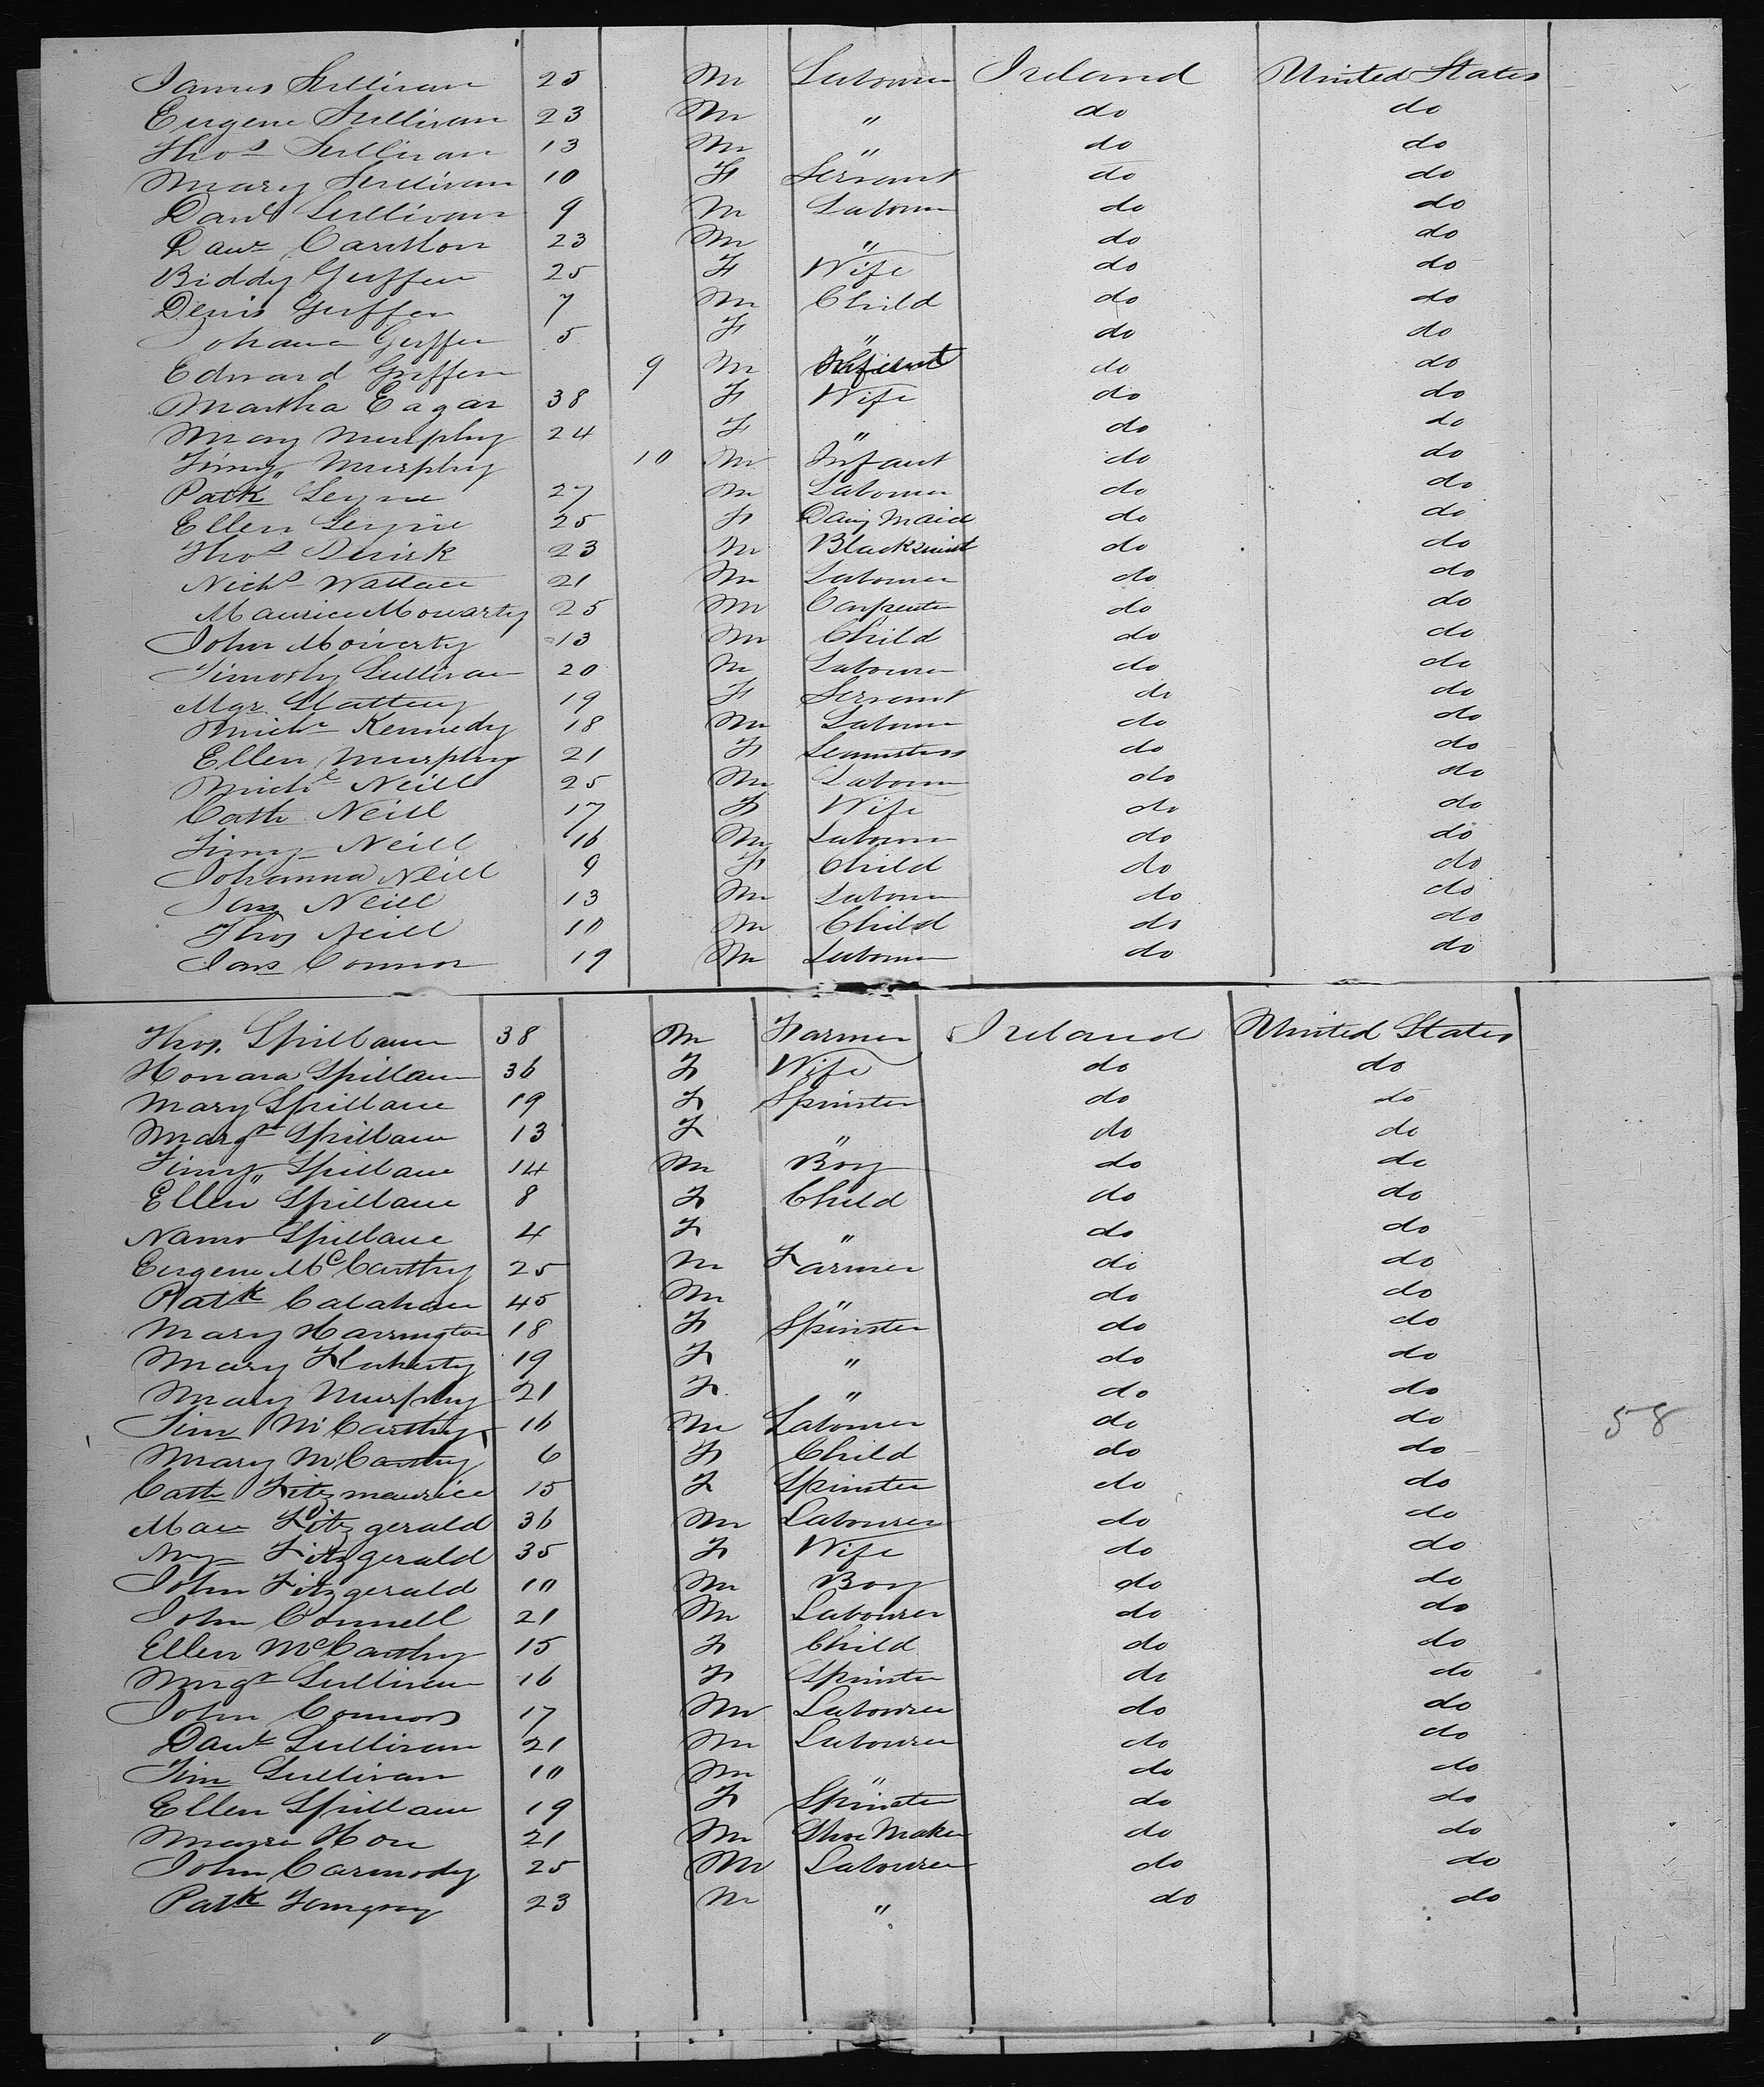 James Sullivan 25 M Labourer Ireland United States
Eugene Sullivan 23 M " do do
Thos Sullivan 13 M " do do
Mary Sullivan 10 F Servant do do
Danl Sullivan 9 M Labourer do do
23 M " do do
Biddy Griffen 25 F Wife do do
Denis Griffen 7 M Child do do
Johana Griffen 5 F " do do
Edward Griffen 9 M Infant do do
Martha Eagar 38 F Wife do do
Mary Murphy 24 F " do do
Timy Murphy 10 M Infant do do
Patk Leyne 27 M Labourer do do
Ellen Leyne 25 F Dairy Maid do do
Thos 23 M Blacksmith do do
Nichs Wallace 21 M Labourer do do
Maurice Mowarty 25 M Carpenter do do
John Mowerty 13 M Child do do
Timothy Sullivan 20 M Labourer do do
Mgr. Slattery 19 F Servant do do
Michl Kennedy 18 M Labourer do do
Ellen Murphy 21 F Seamstress do do
Michl Neill 25 M Labourer do do
Cath Neill 17 F Wife do do
Timy Neill 16 M Labourer do do
Johanna Neill 9 F Child do do
Jas Neill 13 M Labourer do do
Thos Neill 10 M Child do do
Jas Connor 19 M Labourer do do
Thos. Spillane 38 M Farmer Ireland United States
Honara Spillane 36 F Wife do do
Mary Spillane 19 F Spinster do do
Margt Spillane 13 F " do do
Timy Spillane 14 M Boy do do
Ellen Spillane 8 F Child do do
Spillane 4 F " do do
Eugene McCarthy 25 M Farmer do do
Patk Calahan 45 M " do do
Mary Harrington 18 F Spinster do do
Mary Flaherty 19 F " do do
Mary Murphy 21 F " do do
Tim McCarthy 16 M Labourer do do
58
Mary McCarthy 6 F Child do do
Cath Fitzmaurice 15 F Spinster do do
Mau Fitzgerald 36 M Labourer do do
My Fitzgerald 35 F Wife do do
John Fitzgerald 10 M Boy do do
John Connell 21 M Labourer do do
Ellen McCarthy 15 F Child do do
Mrgt Sullivan 16 F Spinster do do
John Connors 17 M Labourer do do
Danl Sullivan 21 M Labourer do do
Tim Sullivan 10 M " do do
Ellen Spillane 19 F Spinster do do
21 M Shoe Maker do do
John Carmody 25 M Labourer do do
Patk 23 M " do do